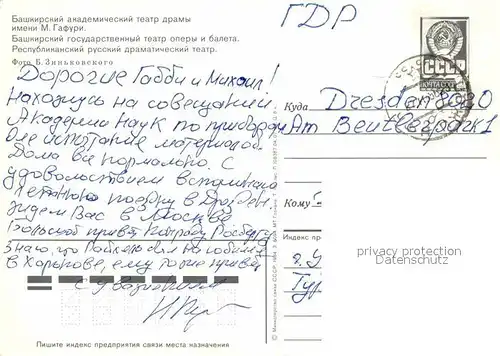 Башкирский академический театр драмы
имени М. Гафури.
Башкирский государственный театр оперы и балета.
Республиканский русский драматический театр.
Фото Б. Зиньковского
ГДР
СССР
ПОЧТА
Дорогие Габби и Михаил!
Нахожусь на совещании
Академии Наук по приборам
для испытание материалов
Дома все нормально. С
удовольствием вспоминаю
летнюю поездку в Дрезден.
Ждем Вас в Москве
Большой привет
знаю, что был на юбилее
в Харькове, ему тоже привет
С уважением
Куда Dresden 8020
Am Beutlerpark 1
Кому
Индекс пр
г. У
Тур
privacy protection
Datenschutz
Пишите индекс предприятия связи места назначения